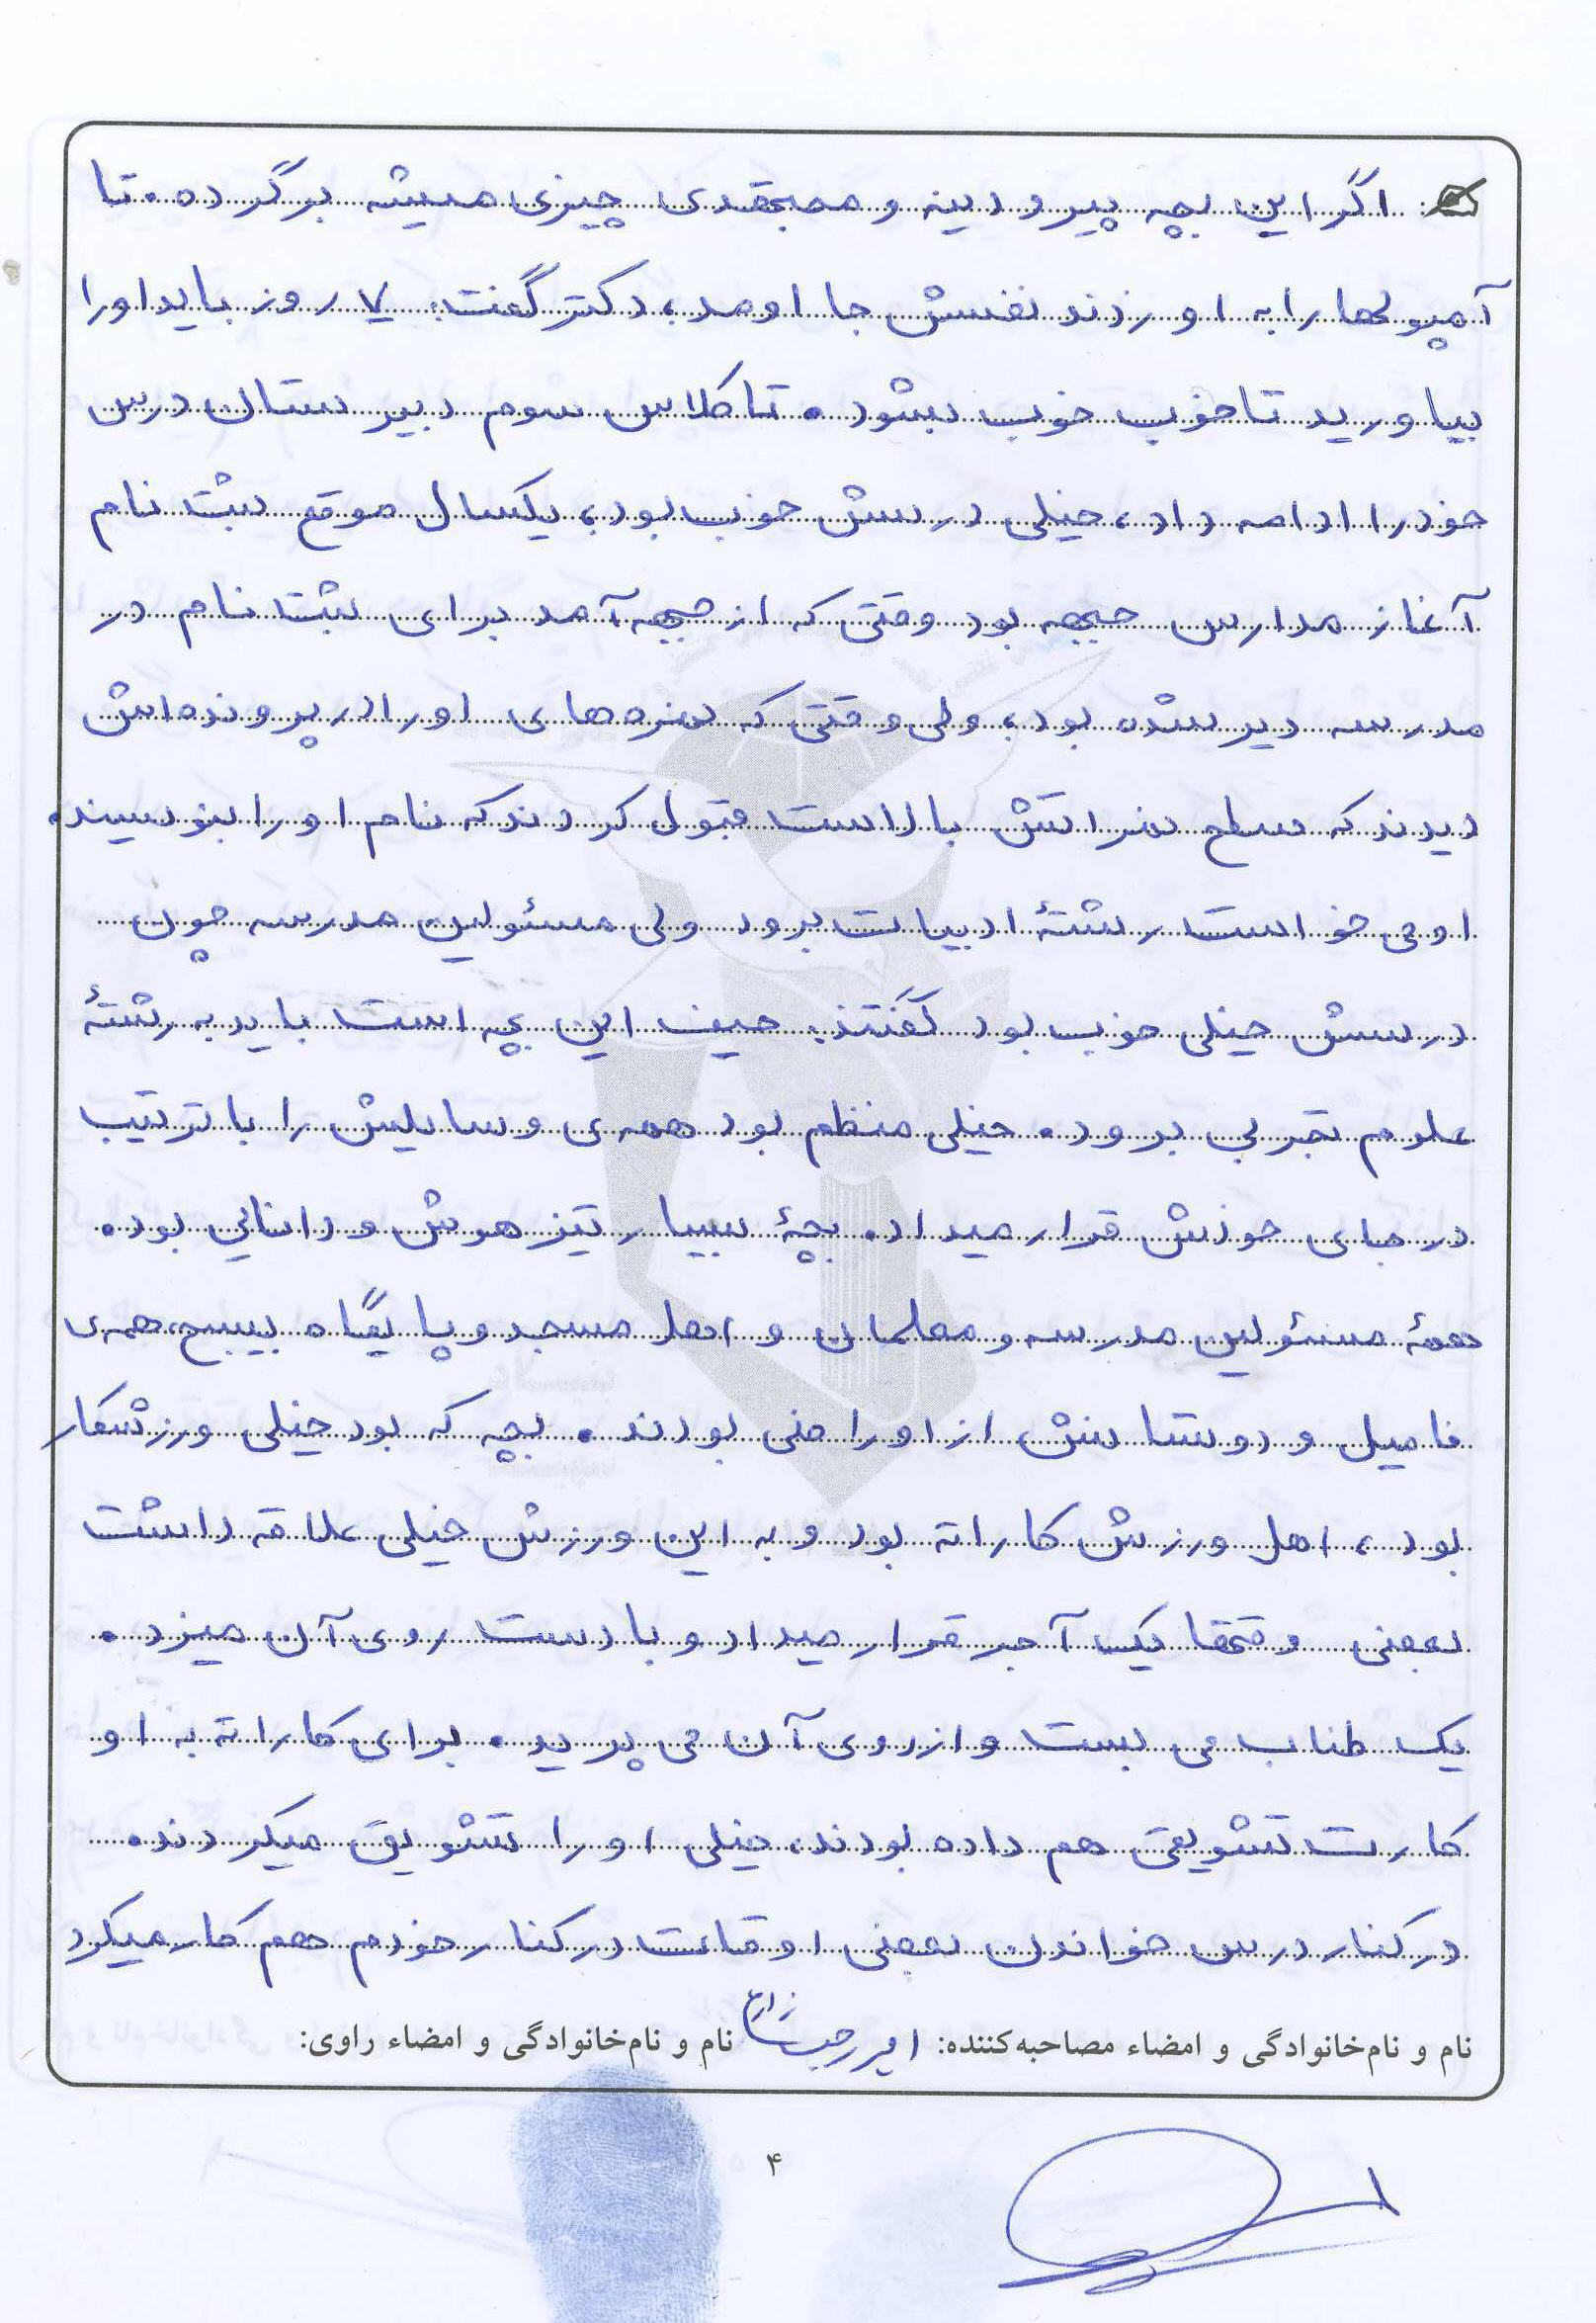 اگر این بچه پیرو دینه و معتقدی چیزی میشه برگرده. تا
آمپولها را به او زدند نفسش جا اومد، دکتر گفت: ۷ روز باید او را
بیاورید تا خوب خوب بشود. تا کلاس سوم دبیرستان درس
خود را ادامه داد، خیلی درسش خوب بود، یکسال موقع ثبت نام
آغاز مدارس جبهه بود وقتی که از جبهه آمد برای ثبت نام در
مدرسه دیر شده بود، ولی وقتی که نمره های او را در پرونده اش
دیدند که سطح نمراتش بالاست قبول کردند که نام او را بنویسند.
او می خواست رشتهٔ ادبیات برود ولی مسئولین مدرسه چون
درسش خیلی خوب بود گفتند: حیف این بچه است باید به رشتهٔ
علوم تجربی برود. خیلی منظم بود همه ی وسایلش را با ترتیب
در جای خودش قرار میداد. بچهٔ بسیار تیزهوش و دانایی بود.
همهٔ مسئولین مدرسه و معلمان و اهل مسجد و پایگاه بسیج، همه ی
فامیل و دوستانش از او راضی بودند. بچه که بود خیلی ورزشکار
بود، اهل ورزش کاراته بود و به این ورزش خیلی علاقه داشت
بعضی وقتها یک آجر قرار میداد و با دست روی آن میزد.
یک طناب می بست و از روی آن می پرید. برای کاراته به او
کارت تشویقی هم داده بودند، خیلی او را تشویق میکردند.
در کنار درس خواندن بعضی اوقات در کنار خودم هم کار میکرد
نام و نام‌خانوادگی و امضاء مصاحبه‌کننده: امیر نام و نام‌خانوادگی و امضاء راوی:
۴